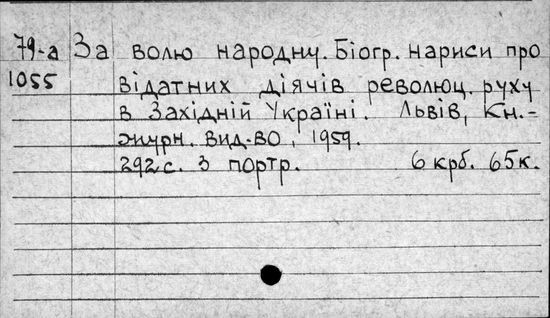 79-а За волю народну. Біогр. нариси про
1055 відатних діячів революц. руху
в Західній Україні. Львів, Кн.-
журн. вид-во, 1959.
292 с. з портр. 6 крб. 65 к.